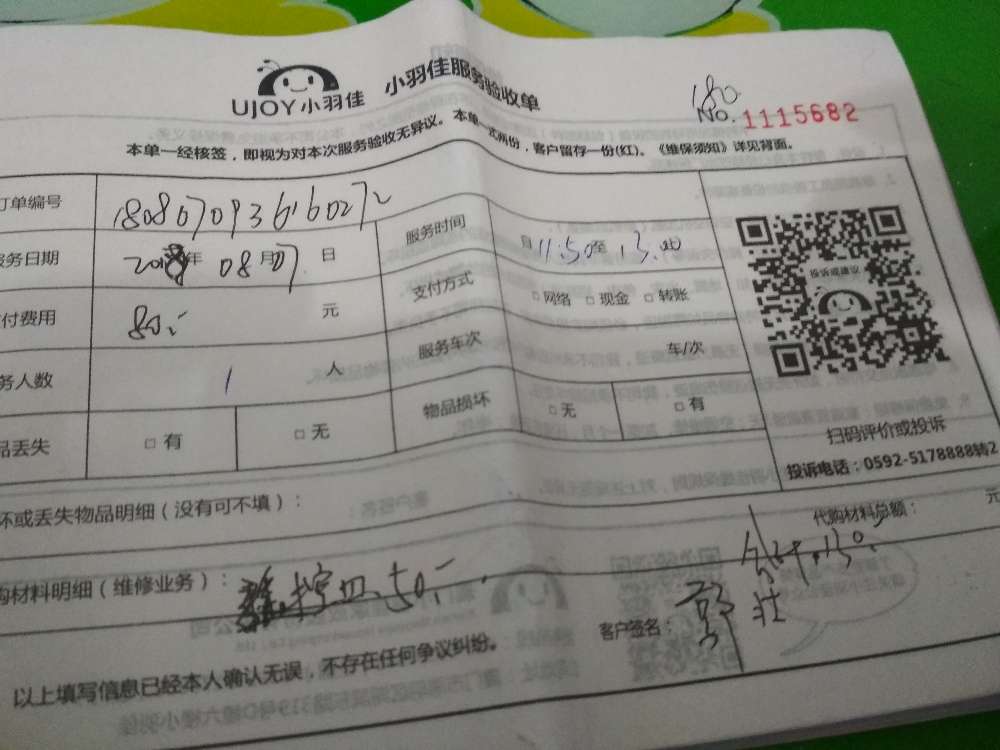 UJOY小羽佳 小羽佳服务验收单
180
No. 1115682
本单一经核签，即视为对本次服务验收无异议。本单一式两份，客户留存一份(红)。《维保须知》详见背面。
订单编号 180807093616027
服务时间 自11.50至13.
务日期 2018年08月07日
支付方式 □网络 □现金 □转账
付费用 80.- 元
服务车次 车/次
务人数 1 人
物品损坏 □无 □有
品丢失 □有 □无
投诉或建议
扫码评价或投诉
投诉电话：0592-5178888转2
坏或丢失物品明细（没有可不填）：
代购材料总额： 元
购材料明细（维修业务）： 50.-
合计.130.-
客户签名：
以上填写信息已经本人确认无误，不存在任何争议纠纷。